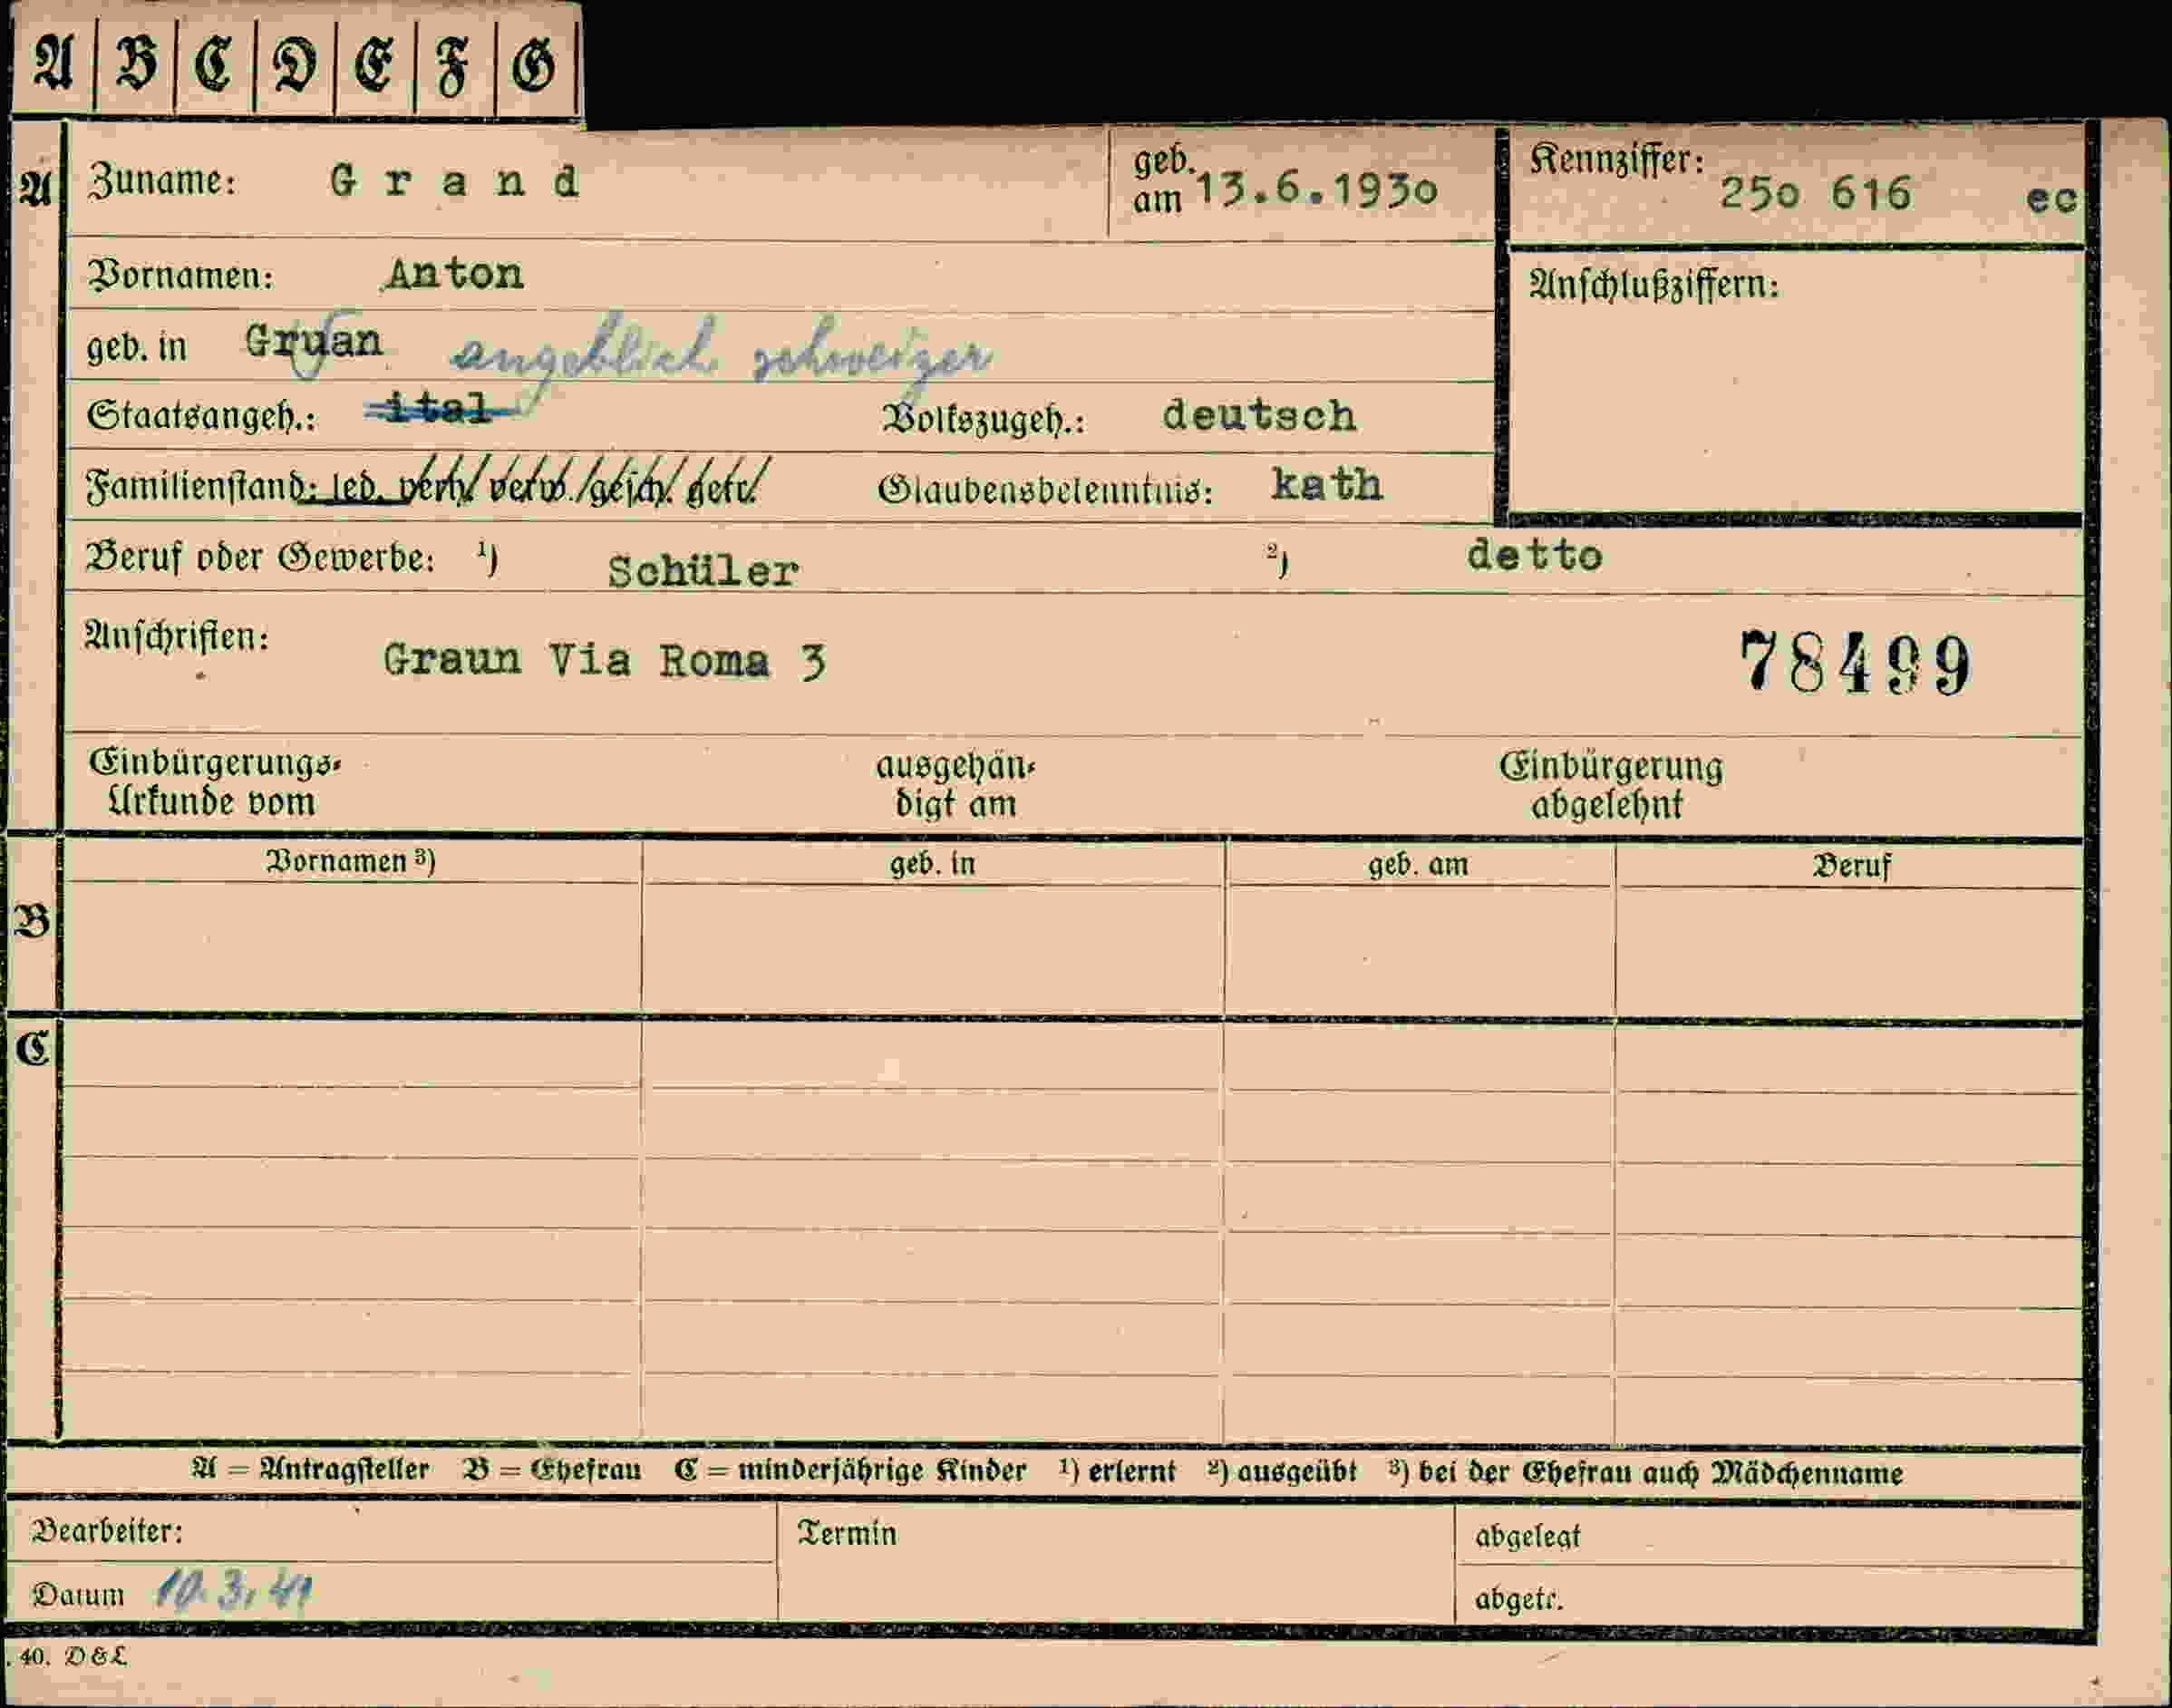 A B C D E F G
A Zuname: Grand geb. am 13.6.1930 Kennziffer: 250 616 ec
Vornamen: Anton Anschlußziffern:
geb. in Gruan angeblich schweizer
Staatsangeh.: ital Volkszugeh.: deutsch
Familienstand: led. verh. verw. gesch. getr. Glaubensbekenntnis: kath
Beruf oder Gewerbe: ¹) Schüler ²) detto
Anschriften: Graun Via Roma 3 78499
Einbürgerungs- ausgehän- Einbürgerung
Urkunde vom digt am abgelehnt
Vornamen ³) geb. in geb. am Beruf
B
C
A = Antragsteller B = Ehefrau C = minderjährige Kinder ¹) erlernt ²) ausgeübt ³) bei der Ehefrau auch Mädchenname
Bearbeiter: Termin abgelegt
Datum 10.3.41 abgetr.
. 40. D & L